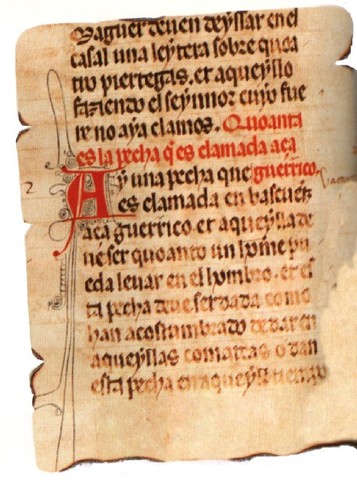 Maguer deuen deyssar en el
casal una leytera sobre quoa
tro piertegas. et aqueyllo
faziendo el seynnor cuyo fue
re no aya clamos. Quoanta
es la pecha q̃ es clamada aça
Ay una pecha que guerrico.
es clamada en bascuez
aça guerrico. et aqueylla de
ue ser quoanto un home pu
eda leuar en el hombro. et es
ta pecha deue ser dada como
han acostumbrado de dar en
aqueyllas comarcas o dan
esta pecha en aqueyll tiempo